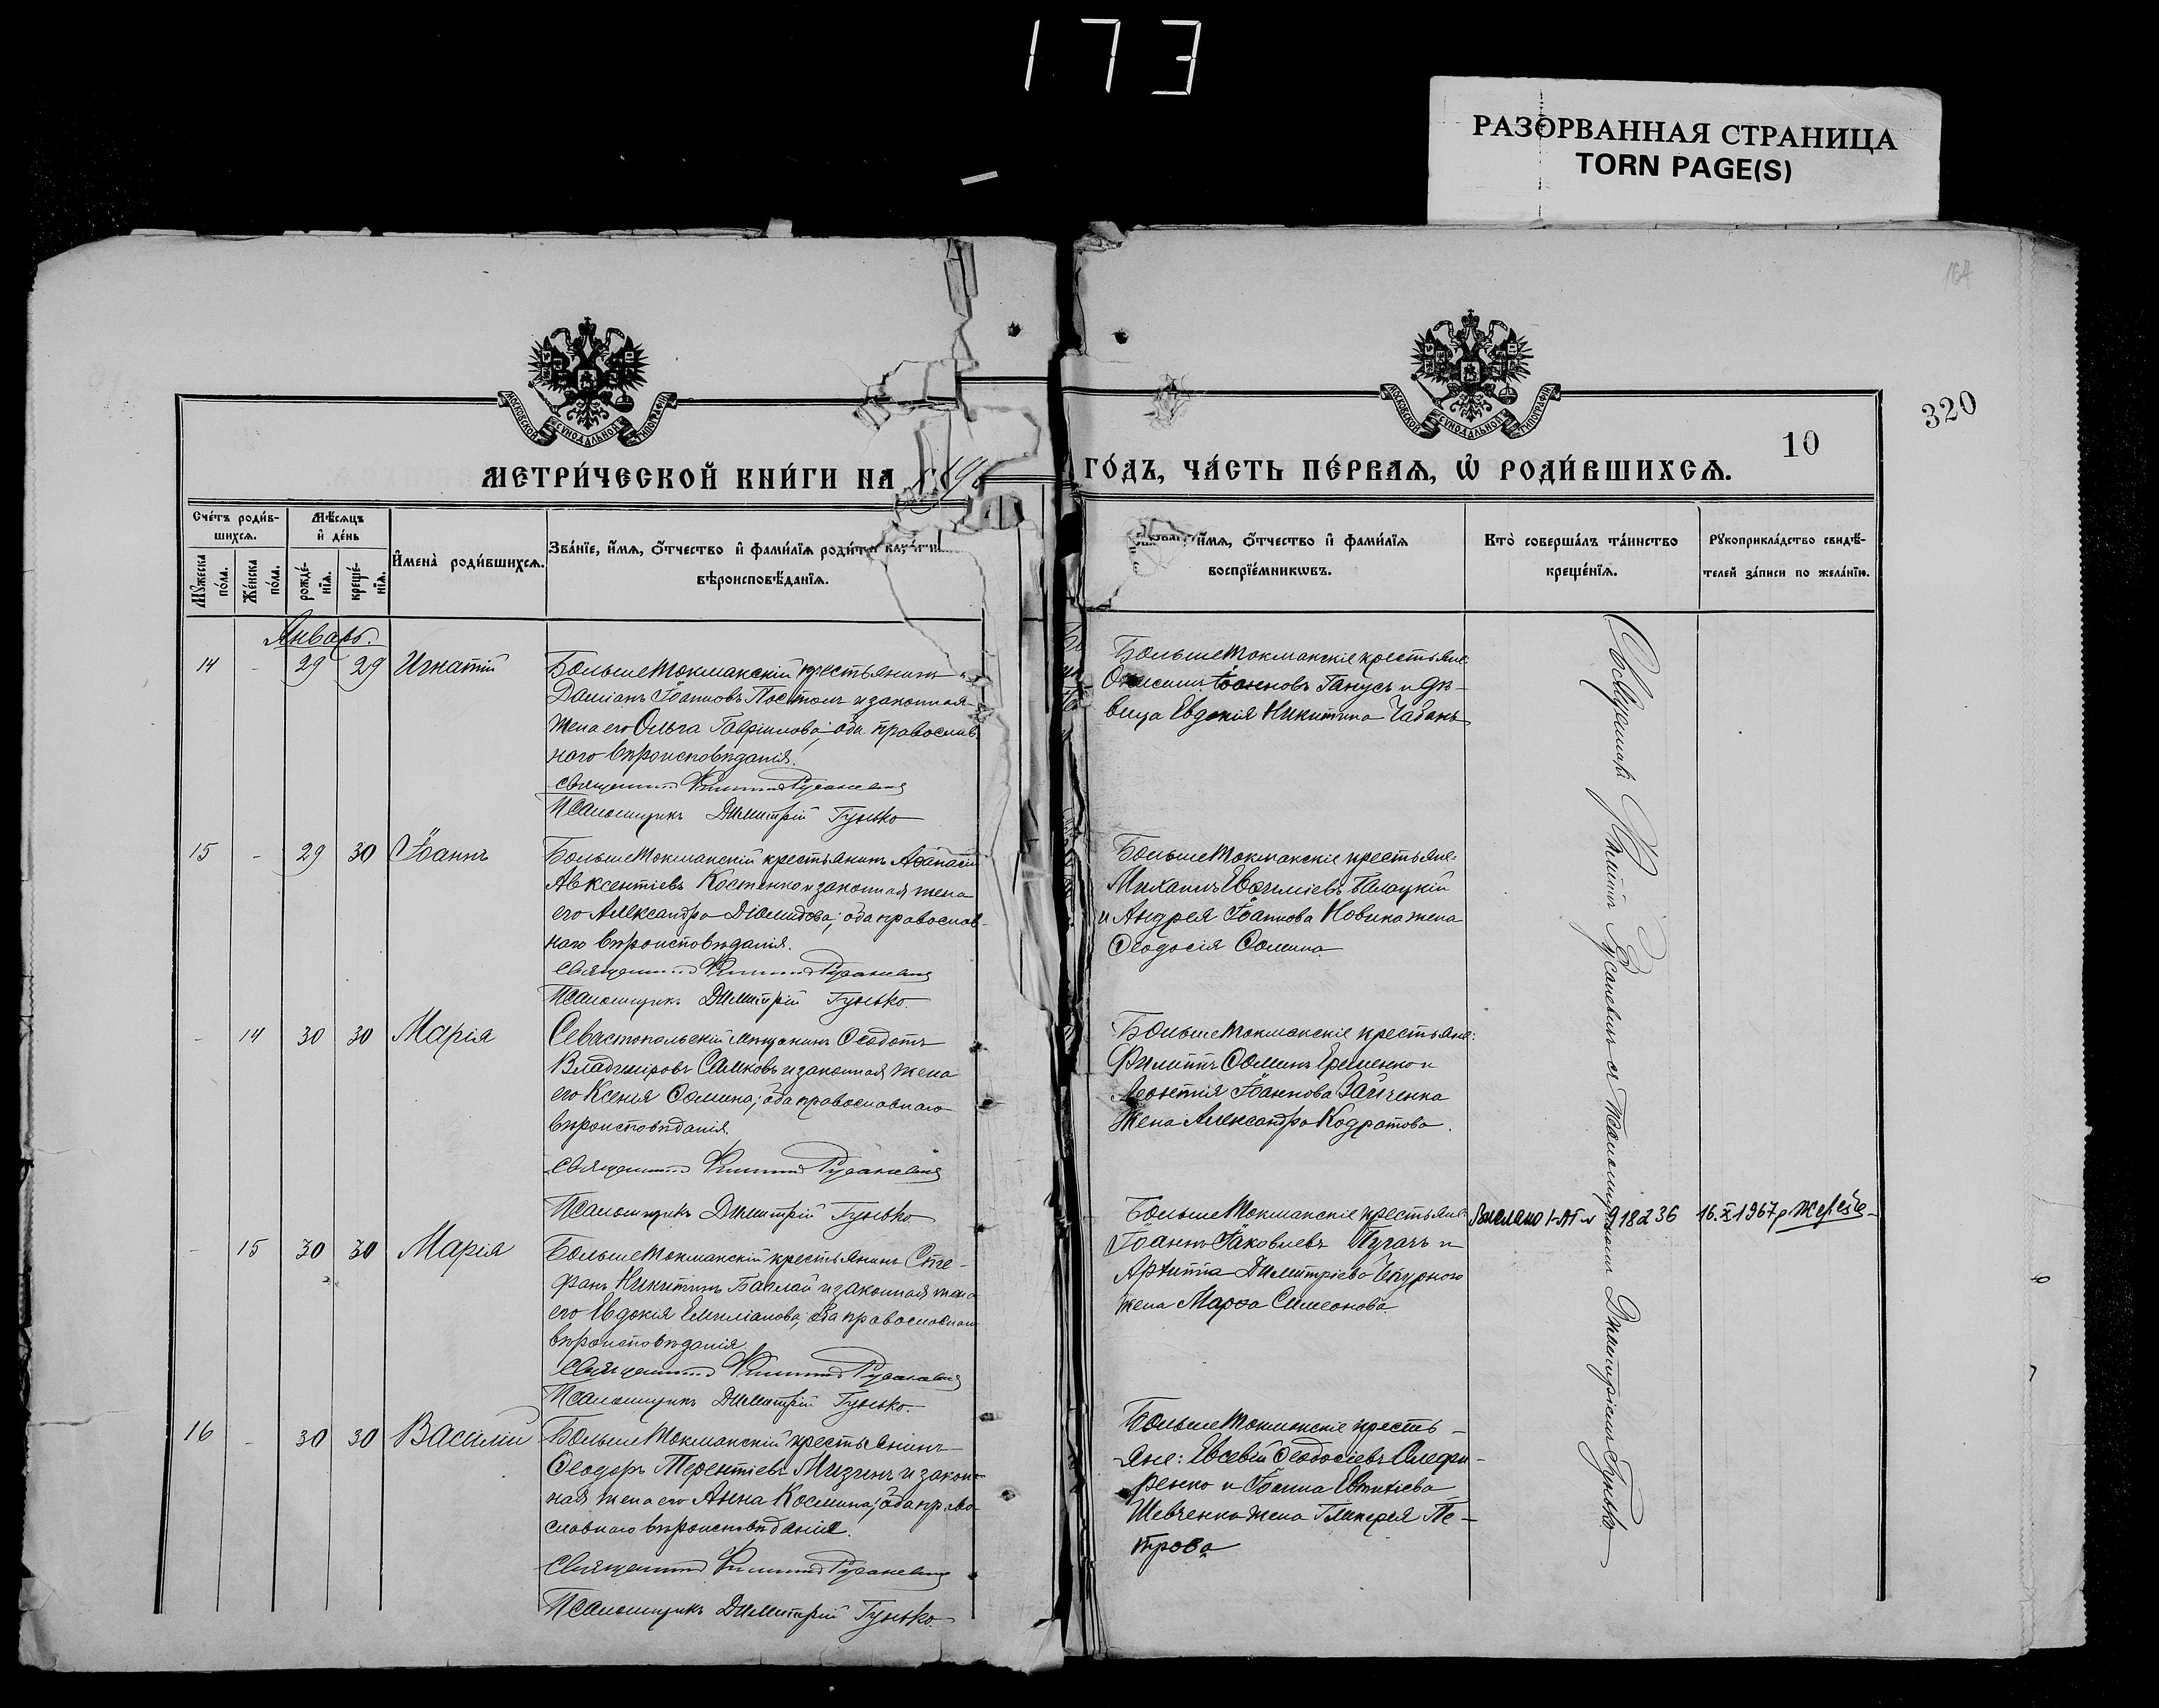 173
РАЗОРВАННАЯ СТРАНИЦА
TORN PAGE(S)
164
320
10
МОСКОВСКОЙ СѴНОДАЛЬНОЙ ТИПОГРАФІИ
МОСКОВСКОЙ СѴНОДАЛЬНОЙ ТИПОГРАФІИ
МЕТРИ́ЧЕСКОЙ КНИ́ГИ НА 19
ГО́ДЪ, ЧА́СТЬ ПЕ́РВАѦ, Ѡ҆ РОДИ́ВШИХСѦ.
Сче́тъ роди́в-
шихсѧ.
Мѣ́сѧцъ
и҆ де́нь
Мꙋ́жеска по́ла.
Же́нска по́ла.
рожде́-нїѧ.
креще́-нїѧ.
И҆мена̀ роди́вшихсѧ.
Зва́нїе, и҆́мѧ, ѻ҆́тчество и҆ фами́лїѧ роди́тел
вѣроисповѣ́данїѧ.
и҆́мѧ, ѻ҆́тчество и҆ фами́лїѧ
воспрїе́мникωвъ.
Кто̀ соверша́лъ та́инство
креще́нїѧ.
Рꙋкоприкла́дство свидѣ́-
телей за́писи по жела́нїю.
Январь.
14 - 29 29 Игнатій
БольшеТокмакскій крестьянинъ
Даміанъ Іоанновъ Постолъ и законная
жена его Ольга Гавріилова; оба православ-
наго вѣроисповѣданія.
Священникъ Филиппъ Русаневичъ
Псаломщикъ Димитрій Гунько
БольшеТокмакскіе крестьяне:
Онисимъ Іоанновъ Ганусъ и дѣ-
вица Евдокія Никитина Чабанъ
15 - 29 30 Іоаннъ
БольшеТокмакскій крестьянинъ Аѳанасій
Авксентіевъ Костенко и законная жена
его Александра Діомидова; оба православ-
наго вѣроисповѣданія.
Священникъ Филиппъ Русаневичъ
Псаломщикъ Димитрій Гунько.
БольшеТокмакскіе крестьяне:
Михаилъ Евѳиміевъ Палацкій
и Андрея Іоаннова Новика жена
Ѳеодосія Ѳомина
- 14 30 30 Марія
Севастопольскій мѣщанинъ Ѳеодотъ
Владиміровъ Самковъ и законная жена
его Ксенія Ѳомина; оба православнаго
вѣроисповѣданія.
Священникъ Филиппъ Русаневичъ
Псаломщикъ Димитрій Гунько
БольшеТокмакскіе крестьяне:
Филиппъ Ѳоминъ Еременко и
Леонтія Іоаннова Зайченка
жена Александра Кодратова.
- 15 30 30 Марія
БольшеТокмакскій крестьянинъ Сте-
фанъ Никитинъ Баклай и законная жена
его Евдокія Емиліанова; оба православнаго
вѣроисповѣданія
Священникъ Филиппъ Русаневичъ
Псаломщикъ Димитрій Гунько.
БольшеТокмакскіе крестьяне
Іоаннъ Іаковлевъ Пугачъ и
Архиппа Димитріева Чепурного
жена Марѳа Симеонова
Вислано І-АП № 918236 16.X 1967 р.
16 - 30 30 Василій
БольшеТокмакскій крестьянинъ
Ѳеодоръ Терентіевъ Мизинъ и закон-
ная жена его Анна Космина; оба право-
славнаго вѣроисповѣданія.
Священникъ Филиппъ Русаневичъ
Псаломщикъ Димитрій Гунько.
БольшеТокмакскіе кресть-
яне: Евсевій Ѳеодосіевъ Олефи-
ренко и Іоанна Евтихіева
Шевченка жена Гликерія Пе-
трова
Совершалъ Филиппъ Русаневичъ съ Псаломщикомъ Димитріемъ Гунько.